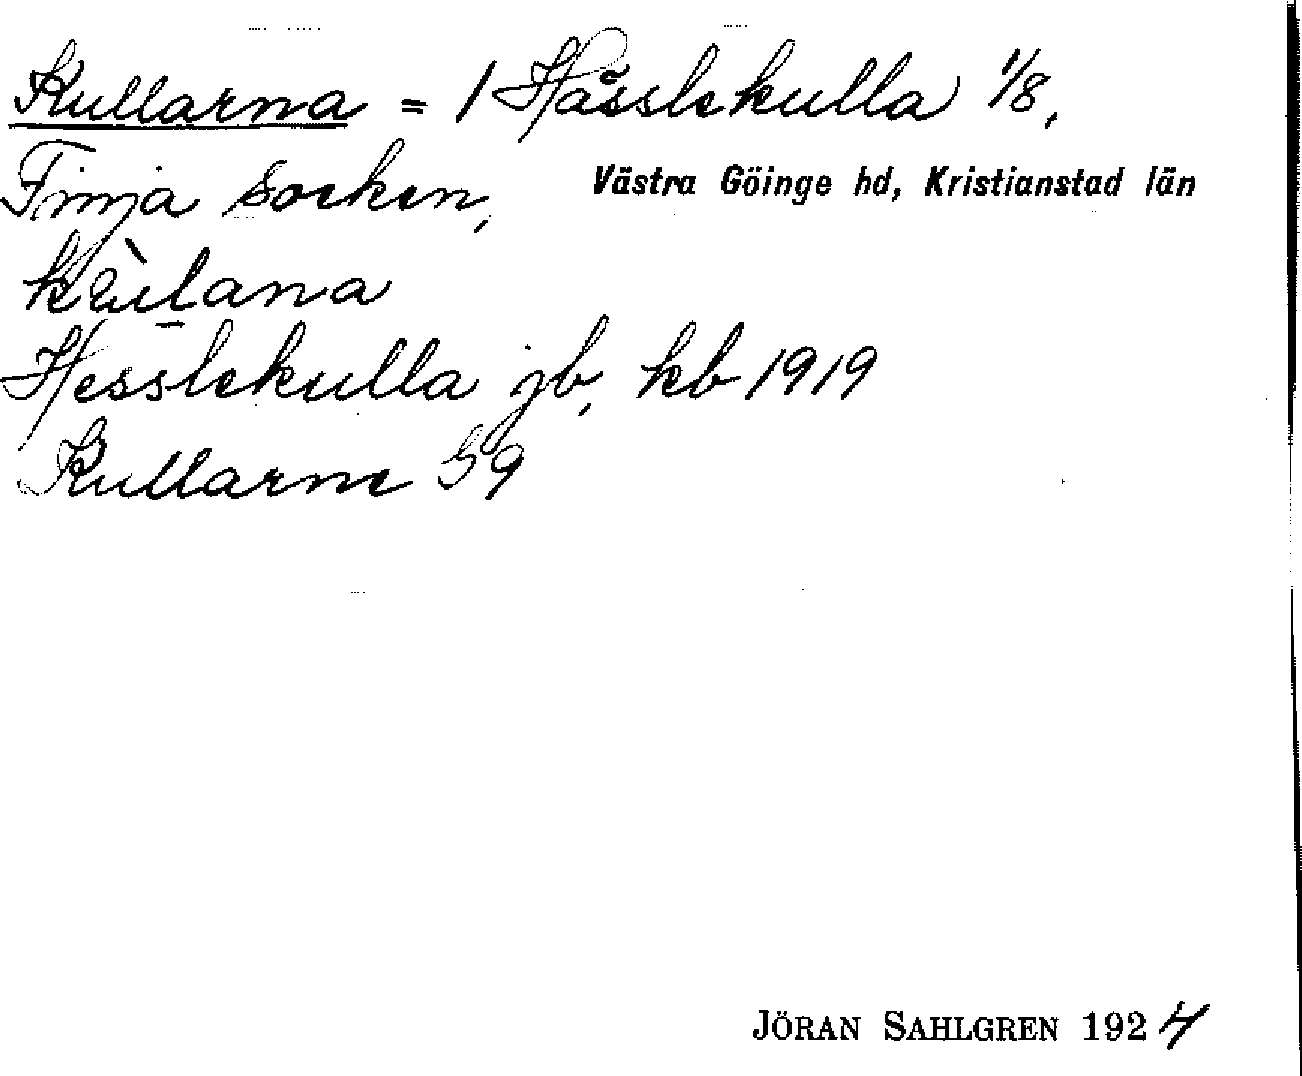 Kullarna = 1 Hässlekulla 1/8,
Finja socken, Västra Göinge hd, Kristianstad län
Hesslekulla jb, kb 1919
Kullarne 59
JÖRAN SAHLGREN 1924